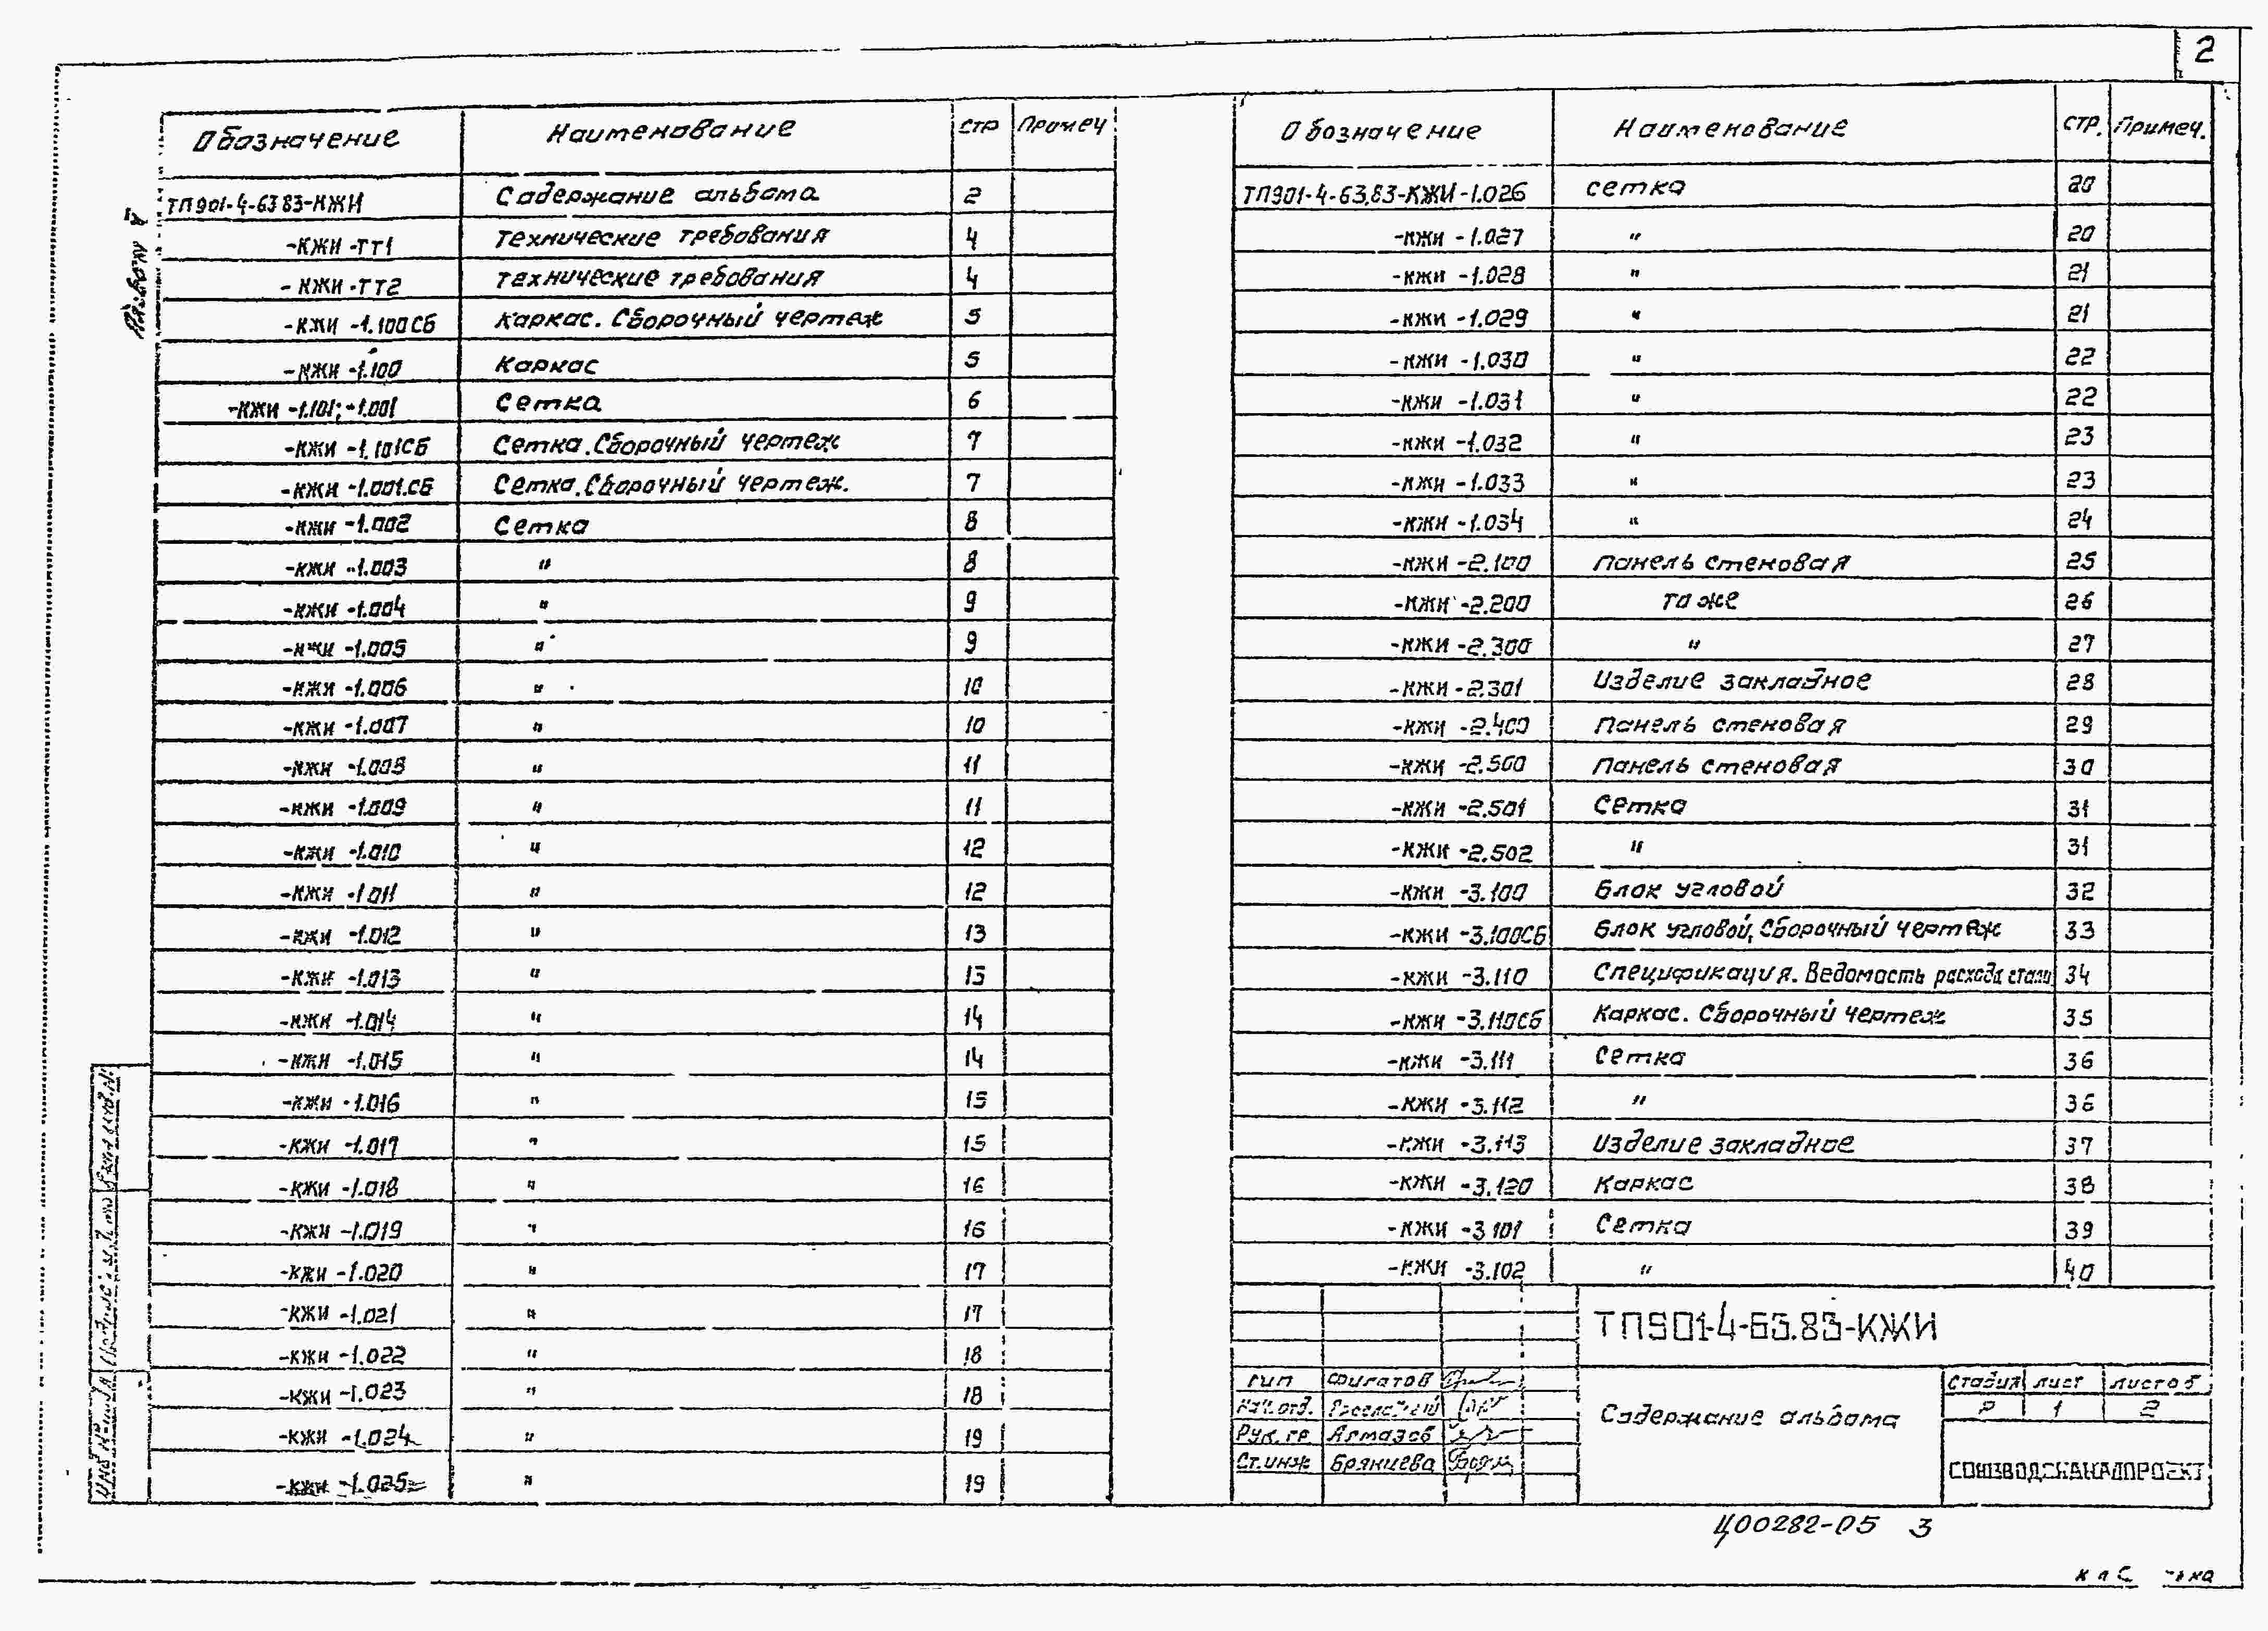 2
Обозначение Наименование Стр Примеч
ТП901-4-63 83-КЖИ Содержание альбома 2
-КЖИ -ТТ1 Технические требования 4
-КЖИ -ТТ2 Технические требования 4
-КЖИ -1.100СБ Каркас. Сборочный чертеж 5
-КЖИ -1.100 Каркас 5
-КЖИ -1.101; -1.001 Сетка 6
-КЖИ -1.101СБ Сетка. Сборочный чертеж 7
-КЖИ -1.001.СБ Сетка. Сборочный чертеж. 7
-КЖИ -1.002 Сетка 8
-КЖИ -1.003 " 8
-КЖИ -1.004 " 9
-КЖИ -1.005 " 9
-КЖИ -1.006 " 10
-КЖИ -1.007 " 10
-КЖИ -1.008 " 11
-КЖИ -1.009 " 11
-КЖИ -1.010 " 12
-КЖИ -1 011 " 12
-КЖИ -1.012 " 13
-КЖИ -1.013 " 13
-КЖИ -1.014 " 14
-КЖИ -1.015 " 14
-КЖИ -1.016 " 15
-КЖИ -1.017 " 15
-КЖИ -1.018 " 16
-КЖИ -1.019 " 16
-КЖИ -1.020 " 17
-КЖИ -1.021 " 17
-КЖИ -1.022 " 18
-КЖИ -1.023 " 18
-КЖИ -1.024 " 19
-КЖИ -1.025 " 19
Обозначение Наименование Стр. Примеч.
ТП901-4-63.83-КЖИ -1.026 Сетка 20
-КЖИ -1.027 " 20
-КЖИ -1.028 " 21
-КЖИ -1.029 " 21
-КЖИ -1.030 " 22
-КЖИ -1.031 " 22
-КЖИ -1.032 " 23
-КЖИ -1.033 " 23
-КЖИ -1.034 " 24
-КЖИ -2.100 Панель стеновая 25
-КЖИ -2.200 То же 26
-КЖИ -2.300 " 27
-КЖИ -2.301 Изделие закладное 28
-КЖИ -2.400 Панель стеновая 29
-КЖИ -2.500 Панель стеновая 30
-КЖИ -2.501 Сетка 31
-КЖИ -2.502 " 31
-КЖИ -3.100 Блок угловой 32
-КЖИ -3.100СБ Блок угловой, Сборочный чертеж 33
-КЖИ -3.110 Спецификация. Ведомость расхода стали 34
-КЖИ -3.110СБ Каркас. Сборочный чертеж 35
-КЖИ -3.111 Сетка 36
-КЖИ -3.112 " 36
-КЖИ -3.113 Изделие закладное 37
-КЖИ -3.120 Каркас 38
-КЖИ -3 101 Сетка 39
-КЖИ -3.102 " 40
ТП901-4-63.83-КЖИ
ГИП Филатов
Нач.отд.
Рук. гр Алмазов
Ст.инж Брянцева
Содержание альбома
Стадия Лист Листов
Р 1 2
СОЮЗВОДОКАНАЛПРОЕКТ
Ц00282-05 3